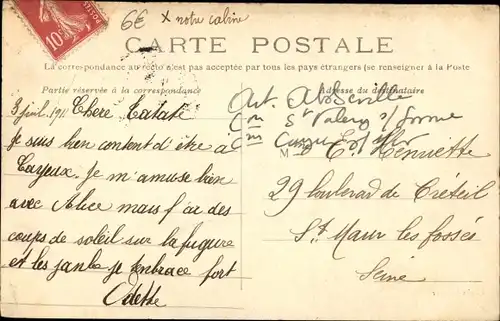 6€ x notre cabine
CARTE POSTALE
La correspondance au recto n'est pas acceptée par tous les pays étrangers (se renseigner à la Poste
Partie réservée à la correspondance
Adresse du destinataire
3 juil. 1911 Chere Tatate
je suis bien content d'être a
Cayeux. Je m'amuse bien
avec Alice mais j'ai des
coups de soleil sur la fugure
et les janbe je enbrace fort
Odette
Art. Abbeville
Con St Valery s/ Somme
Cayeux s/ Mer
M E. Henriette
29 boulevard de Créteil
St. Maur les fossés
Seine
10